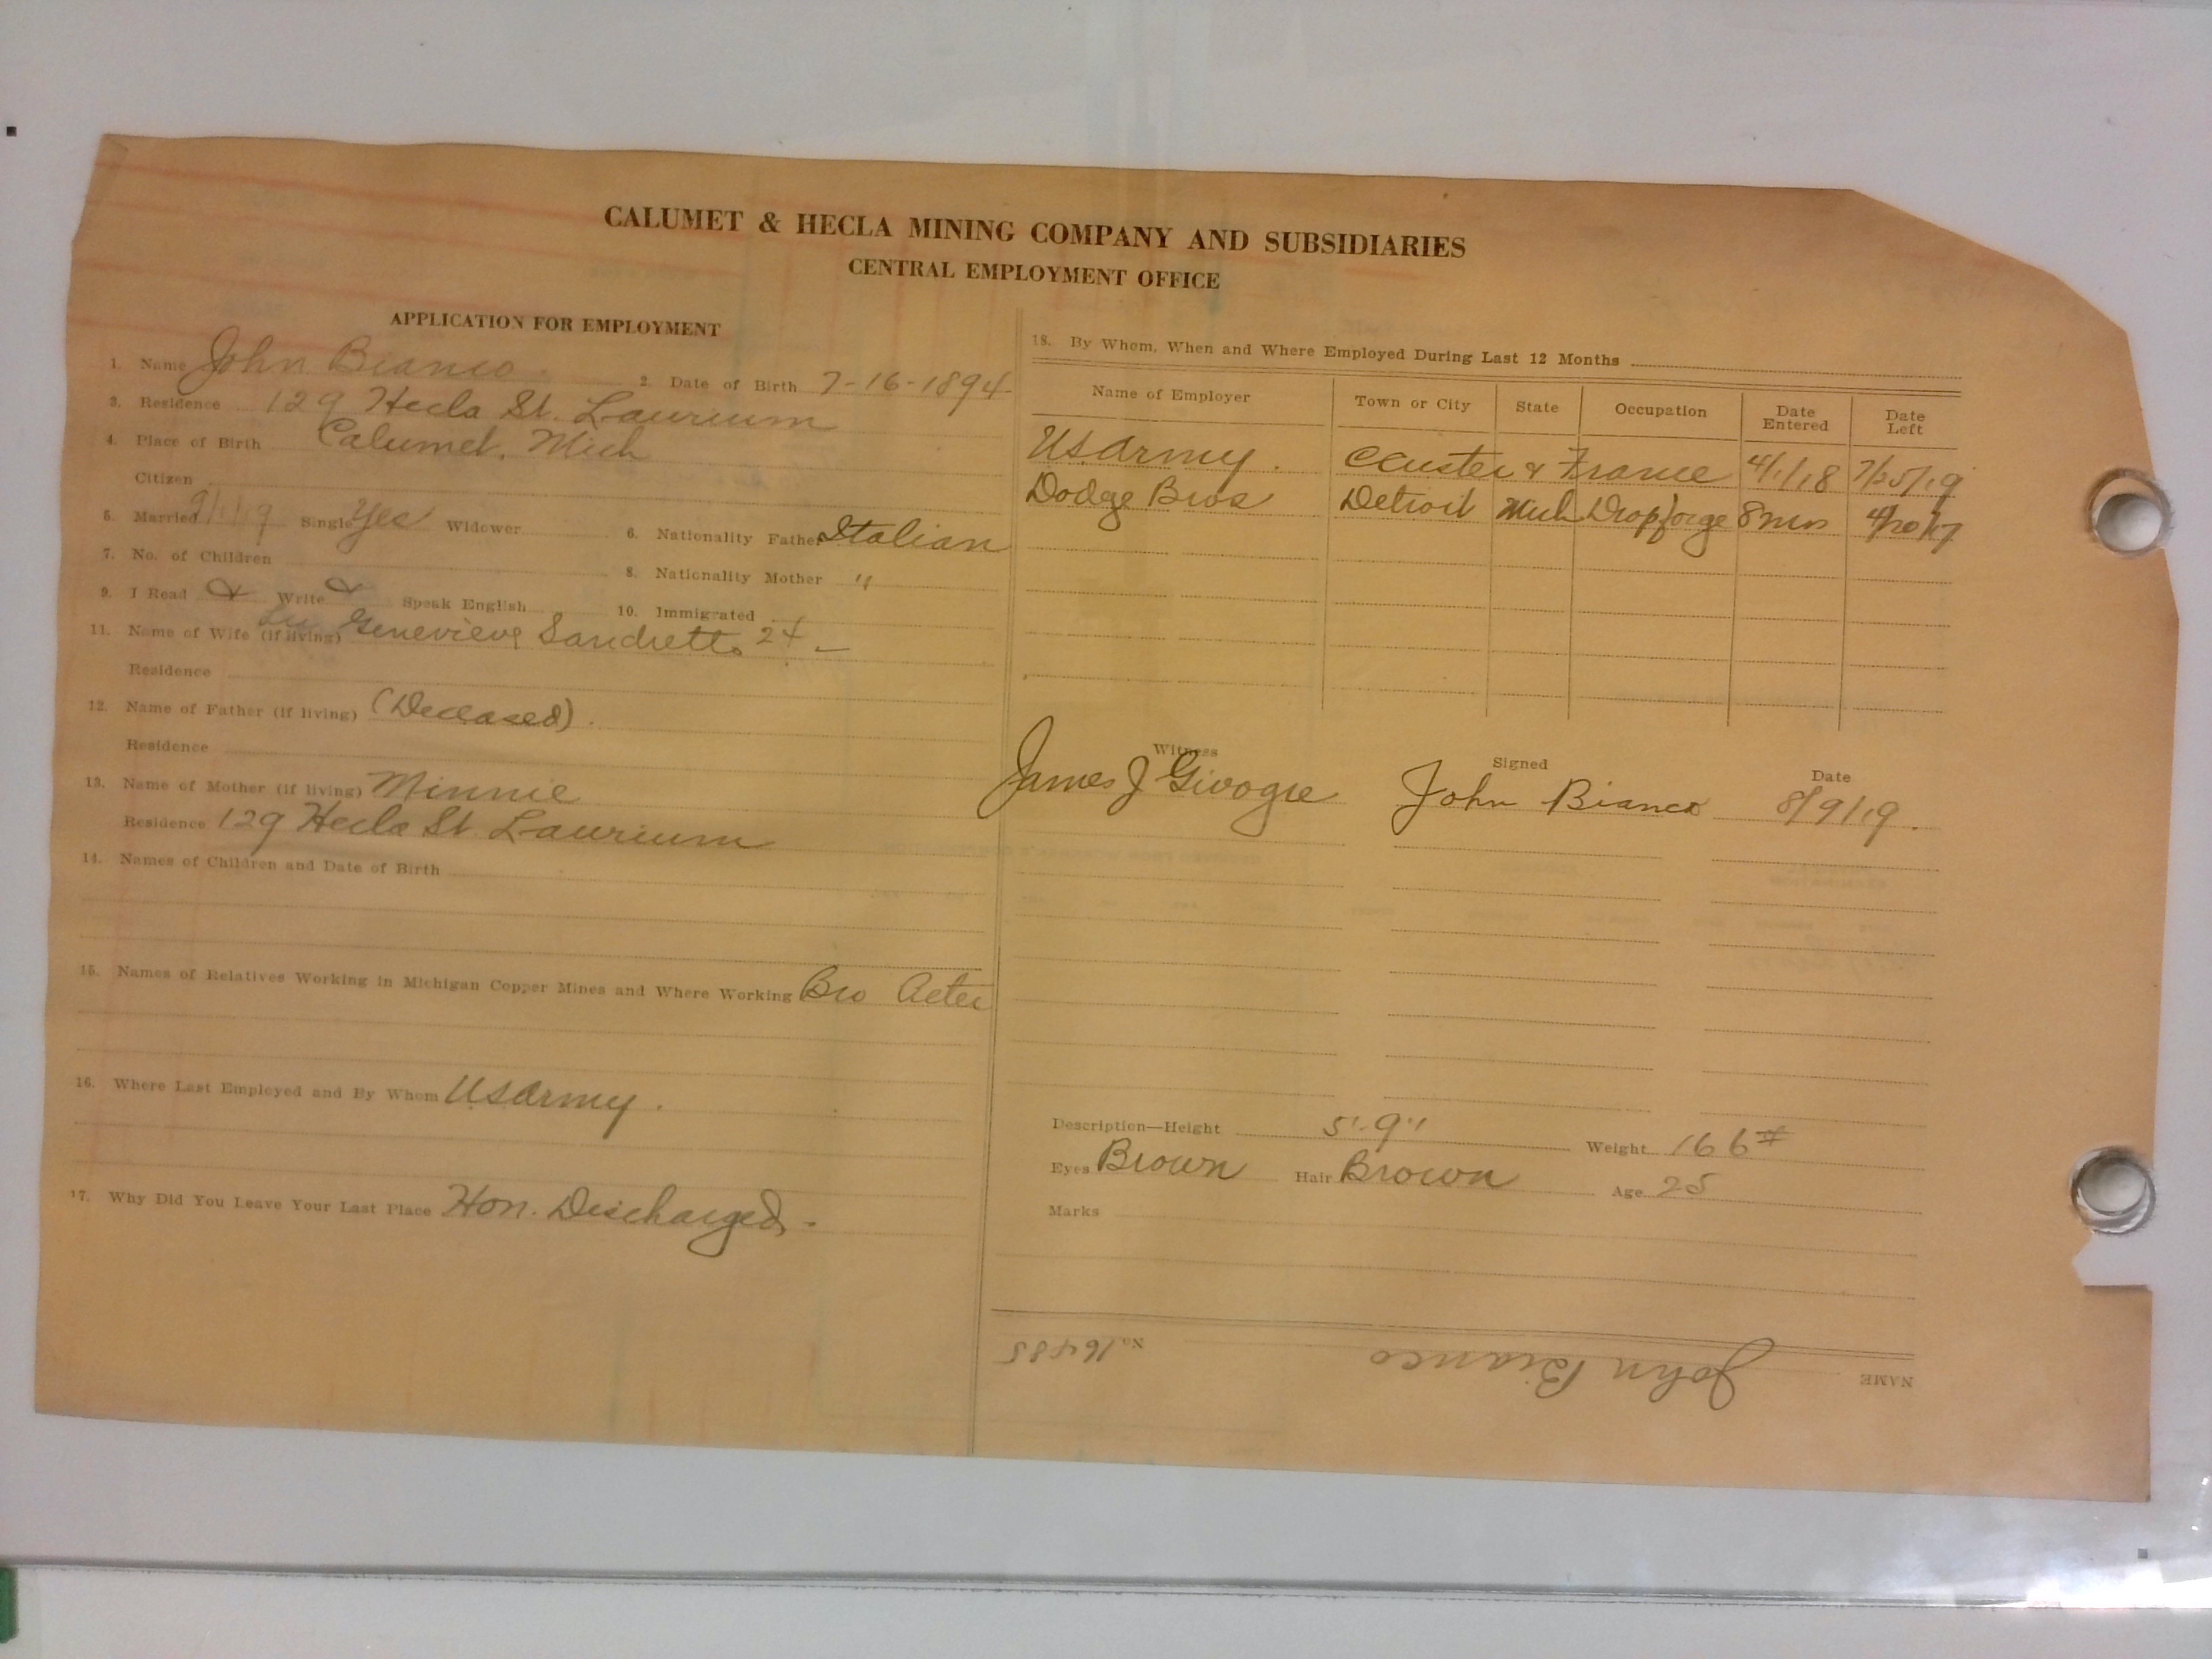 CALUMET & HECLA MINING COMPANY AND SUBSIDIARIES
CENTRAL EMPLOYMENT OFFICE
APPLICATION FOR EMPLOYMENT
1. Name John Bianco 2. Date of Birth 7-16-1894
3. Residence 129 Hecla St. Laurium
4. Place of Birth Calumet, Mich
Citizen
5. Married 9/1/19 Single Yes Widower
6. Nationality Father Italian
7. No. of Children
8. Nationality Mother "
9. I Read Write Speak English
10. Immigrated
11. Name of Wife (if living) Genevieve Sandretto 24
Residence
12. Name of Father (if living) (Deceased).
Residence
13. Name of Mother (if living) Minnie
Residence 129 Hecla St. Laurium
14. Names of Children and Date of Birth
15. Names of Relatives Working in Michigan Copper Mines and Where Working Bro
16. Where Last Employed and By Whom US Army.
17. Why Did You Leave Your Last Place Hon. Discharged.
18. By Whom, When and Where Employed During Last 12 Months
Name of Employer Town or City State Occupation Date Entered Date Left
US Army. Custer & France 4/1/18 7/25/19
Dodge Bros Detroit Mich Dropforge 8 mos 4/20/17
Witness Signed Date
James J John Bianco 8/9/19.
Description—Height 5'-9" Weight 166#
Eyes Brown Hair Brown Age 25
Marks
NAME John Bianco No. 16488